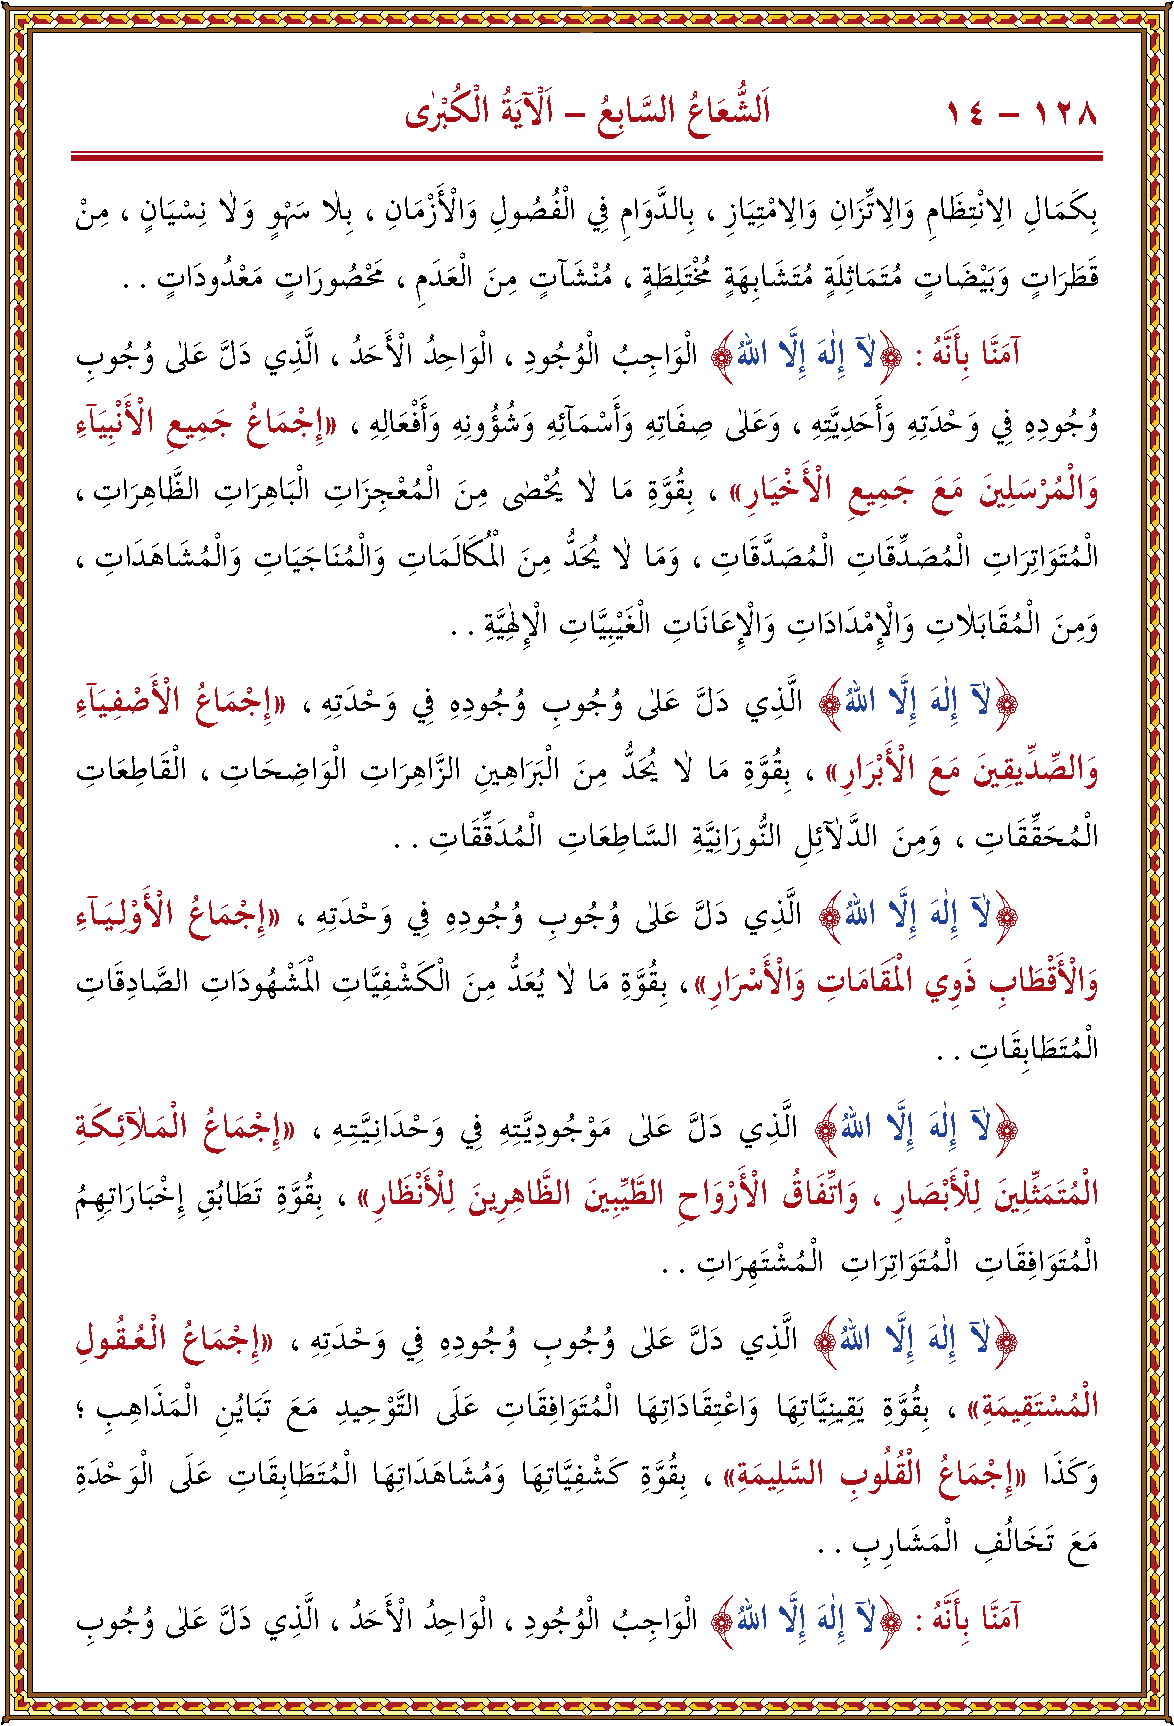 ١٢٨ – ١٤ اَلشُّعَاعُ السَّابِعُ – اَلْآيَةُ الْكُبْرٰى
بِكَمَالِ الِانْتِظَامِ وَالِاتِّزَانِ وَالِامْتِيَازِ ، بِالدَّوَامِ فِي الْفُصُولِ وَالْأَزْمَانِ ، بِلَا سَهْوٍ وَلَا نِسْيَانٍ ، مِنْ
قَطَرَاتٍ وَبَيْضَاتٍ مُتَمَاثِلَةٍ مُتَشَابِهَةٍ مُخْتَلِطَةٍ ، مُنْشَآتٍ مِنَ الْعَدَمِ ، مَحْصُورَاتٍ مَعْدُودَاتٍ . .
آمَنَّا بِأَنَّهُ : ﴿لَآ إِلٰهَ إِلَّا اللهُ﴾ الْوَاجِبُ الْوُجُودِ ، الْوَاحِدُ الْأَحَدُ ، الَّذِي دَلَّ عَلٰى وُجُوبِ
وُجُودِهِ فِي وَحْدَتِهِ وَأَحَدِيَّتِهِ ، وَعَلٰى صِفَاتِهِ وَأَسْمَآئِهِ وَشُؤُونِهِ وَأَفْعَالِهِ ، «إِجْمَاعُ جَمِيعِ الْأَنْبِيَآءِ
وَالْمُرْسَلِينَ مَعَ جَمِيعِ الْأَخْيَارِ» ، بِقُوَّةِ مَا لَا يُحْصٰى مِنَ الْمُعْجِزَاتِ الْبَاهِرَاتِ الظَّاهِرَاتِ ،
الْمُتَوَاتِرَاتِ الْمُصَدِّقَاتِ الْمُصَدَّقَاتِ ، وَمَا لَا يُحَدُّ مِنَ الْمُكَالَمَاتِ وَالْمُنَاجَيَاتِ وَالْمُشَاهَدَاتِ ،
وَمِنَ الْمُقَابَلَاتِ وَالْإِمْدَادَاتِ وَالْإِعَانَاتِ الْغَيْبِيَّاتِ الْإِلٰهِيَّةِ . .
﴿لَآ إِلٰهَ إِلَّا اللهُ﴾ الَّذِي دَلَّ عَلٰى وُجُوبِ وُجُودِهِ فِي وَحْدَتِهِ ، «إِجْمَاعُ الْأَصْفِيَآءِ
وَالصِّدِّيقِينَ مَعَ الْأَبْرَارِ» ، بِقُوَّةِ مَا لَا يُحَدُّ مِنَ الْبَرَاهِينِ الزَّاهِرَاتِ الْوَاضِحَاتِ ، الْقَاطِعَاتِ
الْمُحَقِّقَاتِ ، وَمِنَ الدَّلَآئِلِ النُّورَانِيَّةِ السَّاطِعَاتِ الْمُدَقِّقَاتِ . .
﴿لَآ إِلٰهَ إِلَّا اللهُ﴾ الَّذِي دَلَّ عَلٰى وُجُوبِ وُجُودِهِ فِي وَحْدَتِهِ ، «إِجْمَاعُ الْأَوْلِيَآءِ
وَالْأَقْطَابِ ذَوِي الْمَقَامَاتِ وَالْأَسْرَارِ» ، بِقُوَّةِ مَا لَا يُعَدُّ مِنَ الْكَشْفِيَّاتِ الْمَشْهُودَاتِ الصَّادِقَاتِ
الْمُتَطَابِقَاتِ . .
﴿لَآ إِلٰهَ إِلَّا اللهُ﴾ الَّذِي دَلَّ عَلٰى مَوْجُودِيَّتِهِ فِي وَحْدَانِيَّتِهِ ، «إِجْمَاعُ الْمَلَآئِكَةِ
الْمُتَمَثِّلِينَ لِلْأَبْصَارِ ، وَاتِّفَاقُ الْأَرْوَاحِ الطَّيِّبِينَ الظَّاهِرِينَ لِلْأَنْظَارِ» ، بِقُوَّةِ تَطَابُقِ إِخْبَارَاتِهِمُ
الْمُتَوَافِقَاتِ الْمُتَوَاتِرَاتِ الْمُشْتَهِرَاتِ . .
﴿لَآ إِلٰهَ إِلَّا اللهُ﴾ الَّذِي دَلَّ عَلٰى وُجُوبِ وُجُودِهِ فِي وَحْدَتِهِ ، «إِجْمَاعُ الْعُقُولِ
الْمُسْتَقِيمَةِ» ، بِقُوَّةِ يَقِينِيَّاتِهَا وَاعْتِقَادَاتِهَا الْمُتَوَافِقَاتِ عَلَى التَّوْحِيدِ مَعَ تَبَايُنِ الْمَذَاهِبِ ؛
وَكَذَا «إِجْمَاعُ الْقُلُوبِ السَّلِيمَةِ» ، بِقُوَّةِ كَشْفِيَّاتِهَا وَمُشَاهَدَاتِهَا الْمُتَطَابِقَاتِ عَلَى الْوَحْدَةِ
مَعَ تَخَالُفِ الْمَشَارِبِ . .
آمَنَّا بِأَنَّهُ : ﴿لَآ إِلٰهَ إِلَّا اللهُ﴾ الْوَاجِبُ الْوُجُودِ ، الْوَاحِدُ الْأَحَدُ ، الَّذِي دَلَّ عَلٰى وُجُوبِ